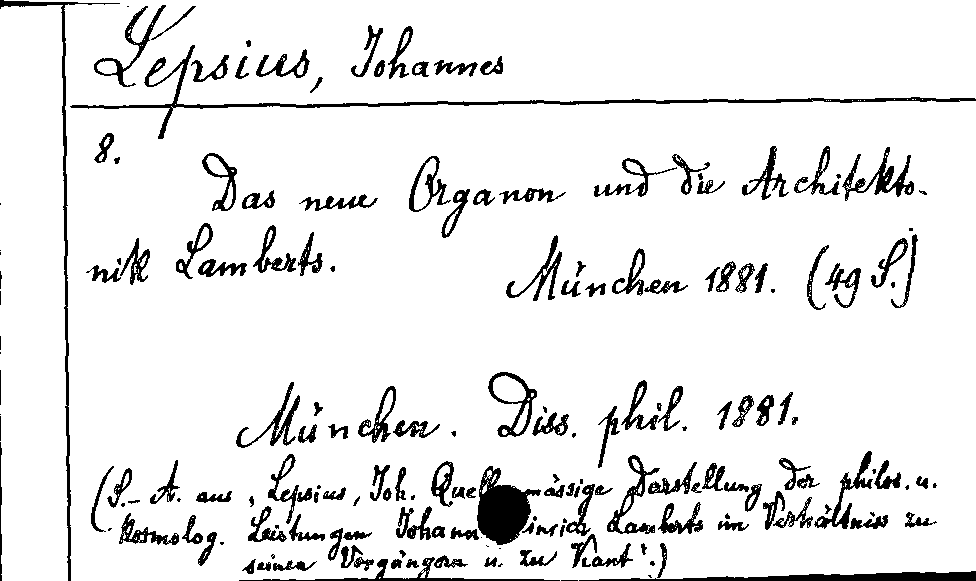 Lepsius, Johannes
8.
Das neue Organon und die Architekto-
nik Lamberts.
München 1881. (49 S.)
München. Diss. phil. 1881.
(S.-A. aus ‚Lepsius, Joh. Quellenmässige Darstellung der philos. u.
kosmolog. Leistungen Johann Heinrich Lamberts im Verhältniss zu
seinen Vorgängern u. zu Kant‘.)